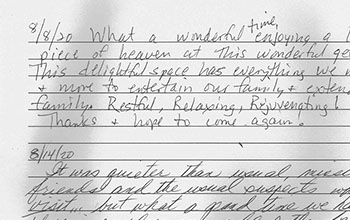 8/8/20 What a wonderful time, enjoying a
piece of heaven at This wonderful
This delightful space has everything we
& more to entertain our family & exten
family. Restful, Relaxing, Rejuvenating!
Thanks & hope to come again.
8/14/20
It was quieter than usual,
friends and the usual suspects
visit... but what a good time we